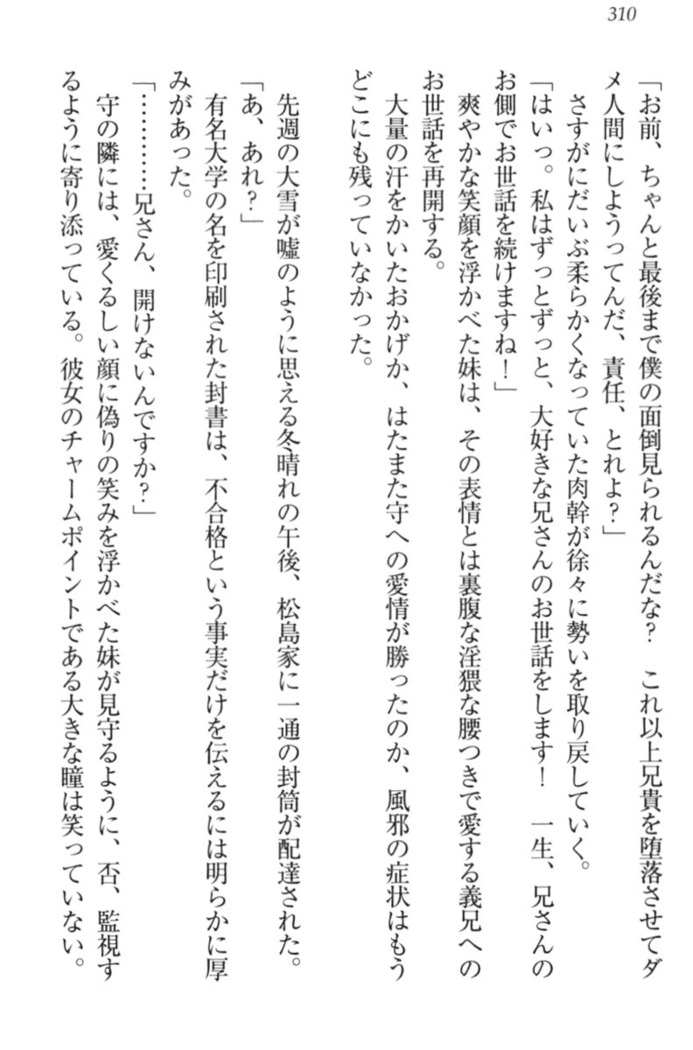 310
「お前、ちゃんと最後まで僕の面倒見られるんだな？　これ以上兄貴を堕落させてダ
メ人間にしようってんだ、責任、とれよ？」
さすがにだいぶ柔らかくなっていた肉幹が徐々に勢いを取り戻していく。
「はいっ。私はずっとずっと、大好きな兄さんのお世話をします！　一生、兄さんの
お側でお世話を続けますね！」
爽やかな笑顔を浮かべた妹は、その表情とは裏腹な淫猥な腰つきで愛する義兄への
お世話を再開する。
大量の汗をかいたおかげか、はたまた守への愛情が勝ったのか、風邪の症状はもう
どこにも残っていなかった。
先週の大雪が嘘のように思える冬晴れの午後、松島家に一通の封筒が配達された。
「あ、あれ？」
有名大学の名を印刷された封書は、不合格という事実だけを伝えるには明らかに厚
みがあった。
「…………兄さん、開けないんですか？」
守の隣には、愛くるしい顔に偽りの笑みを浮かべた妹が見守るように、否、監視す
るように寄り添っている。彼女のチャームポイントである大きな瞳は笑っていない。